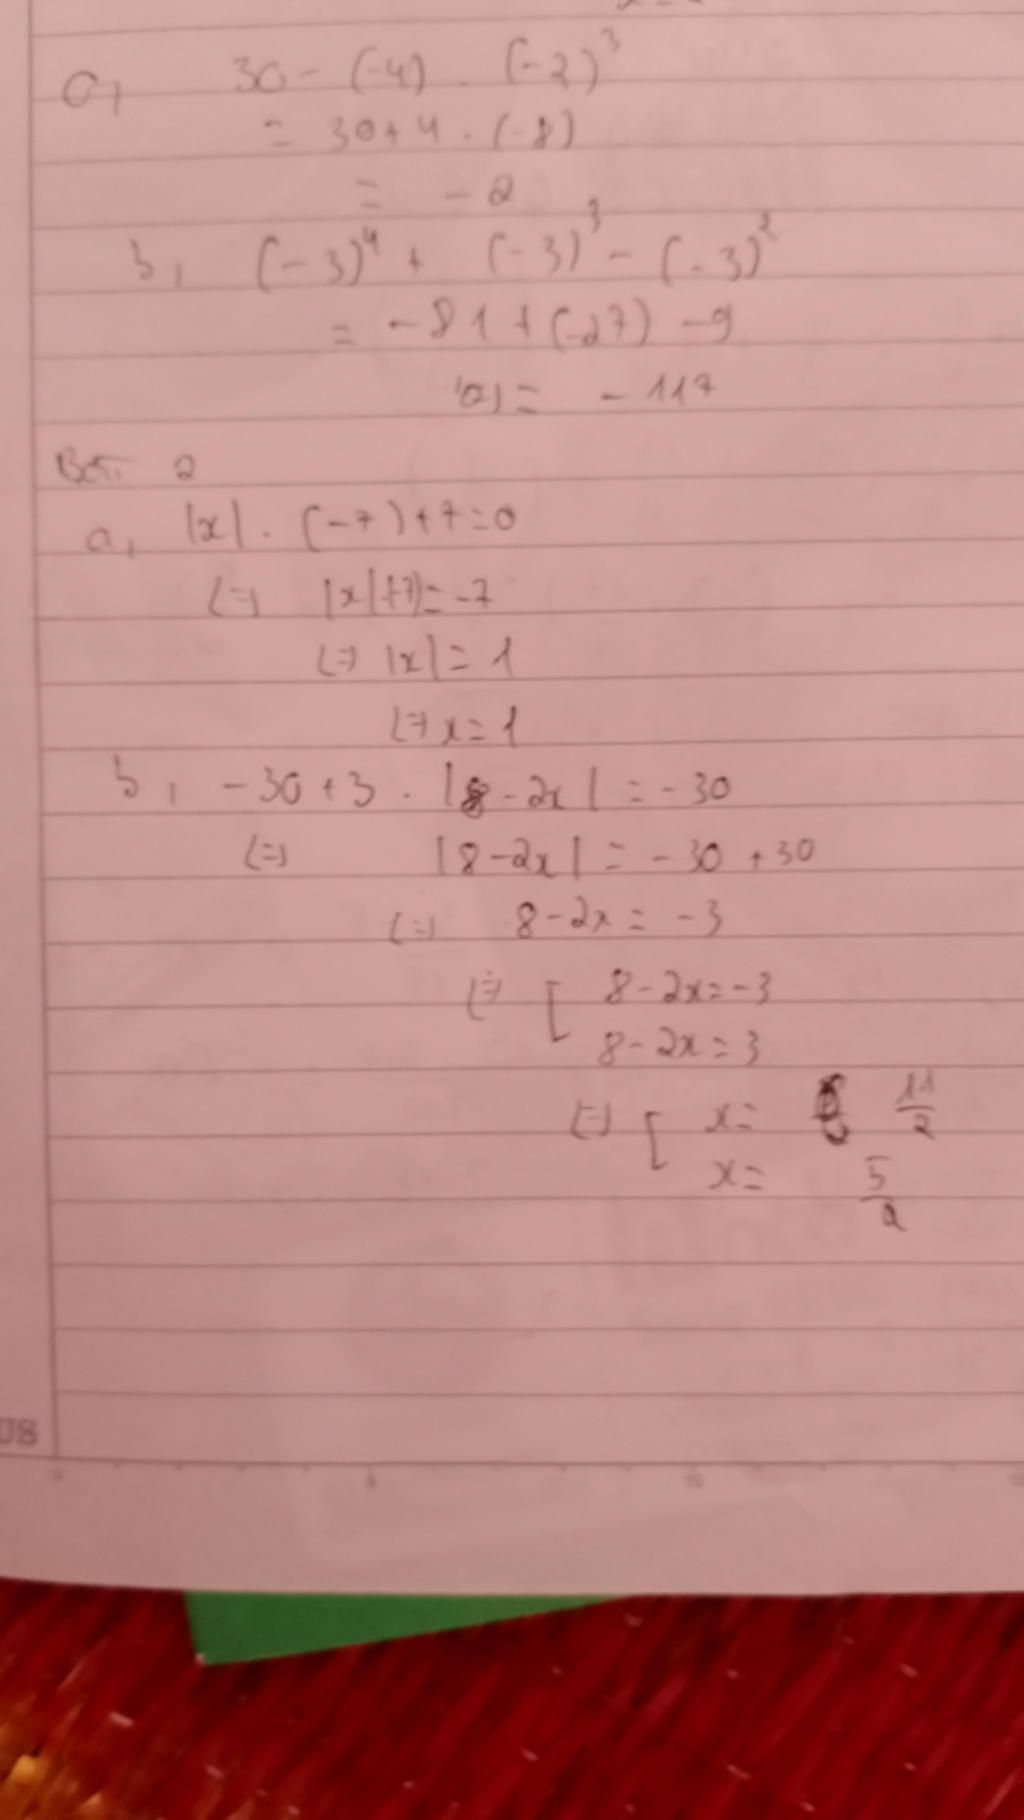 a, 30 - (-4) . (-2)³
= 30 + 4 . (-8)
= - 2
b, (-3)⁴ + (-3)³ - (-3)²
= -81 + (-27) - 9
= - 117
Bài 2
a, |x| . (-7) + 7 = 0
<=> |x| = -7
<=> |x| = 1
<=> x = 1
b, -30 + 3 . |8 - 2x| = -30
<=> |8 - 2x| = -30 + 30
<=> 8 - 2x = -3
<=> [ 8 - 2x = -3
8 - 2x = 3
<=> [ x = 11/2
x = 5/2
US
5 10